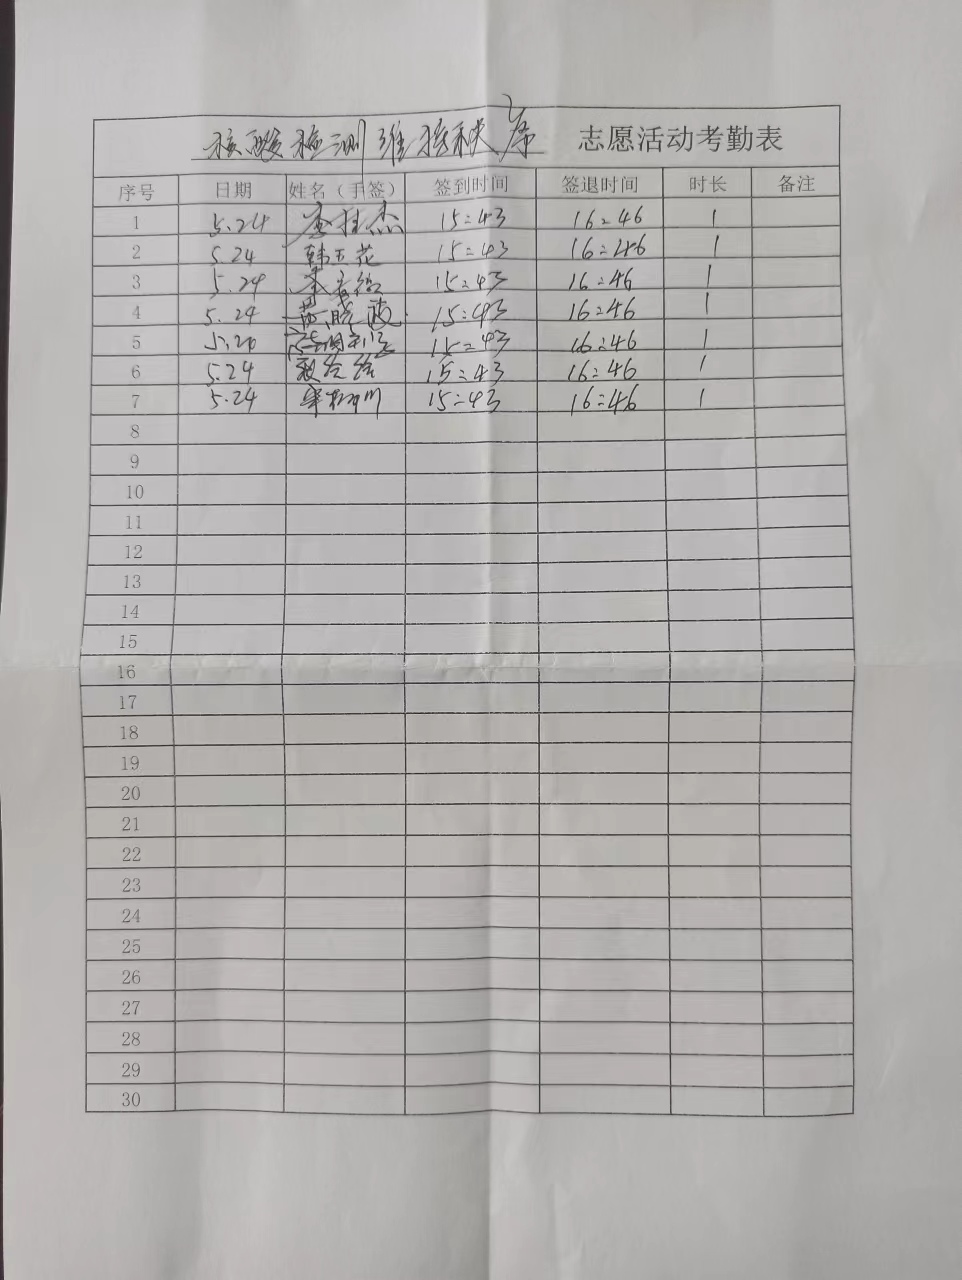 核酸检测维持秩序 志愿活动考勤表
序号 日期 姓名（手签） 签到时间 签退时间 时长 备注
1 5.24 杰 15:43 16:46 1
2 5.24 韩玉花 15:43 16:46 1
3 5.24 15:43 16:46 1
4 5.24 晓波 15:43 16:46 1
5 15:43 16:46 1
6 5.24 15:43 16:46 1
7 5.24 15:43 16:46 1
8
9
10
11
12
13
14
15
16
17
18
19
20
21
22
23
24
25
26
27
28
29
30